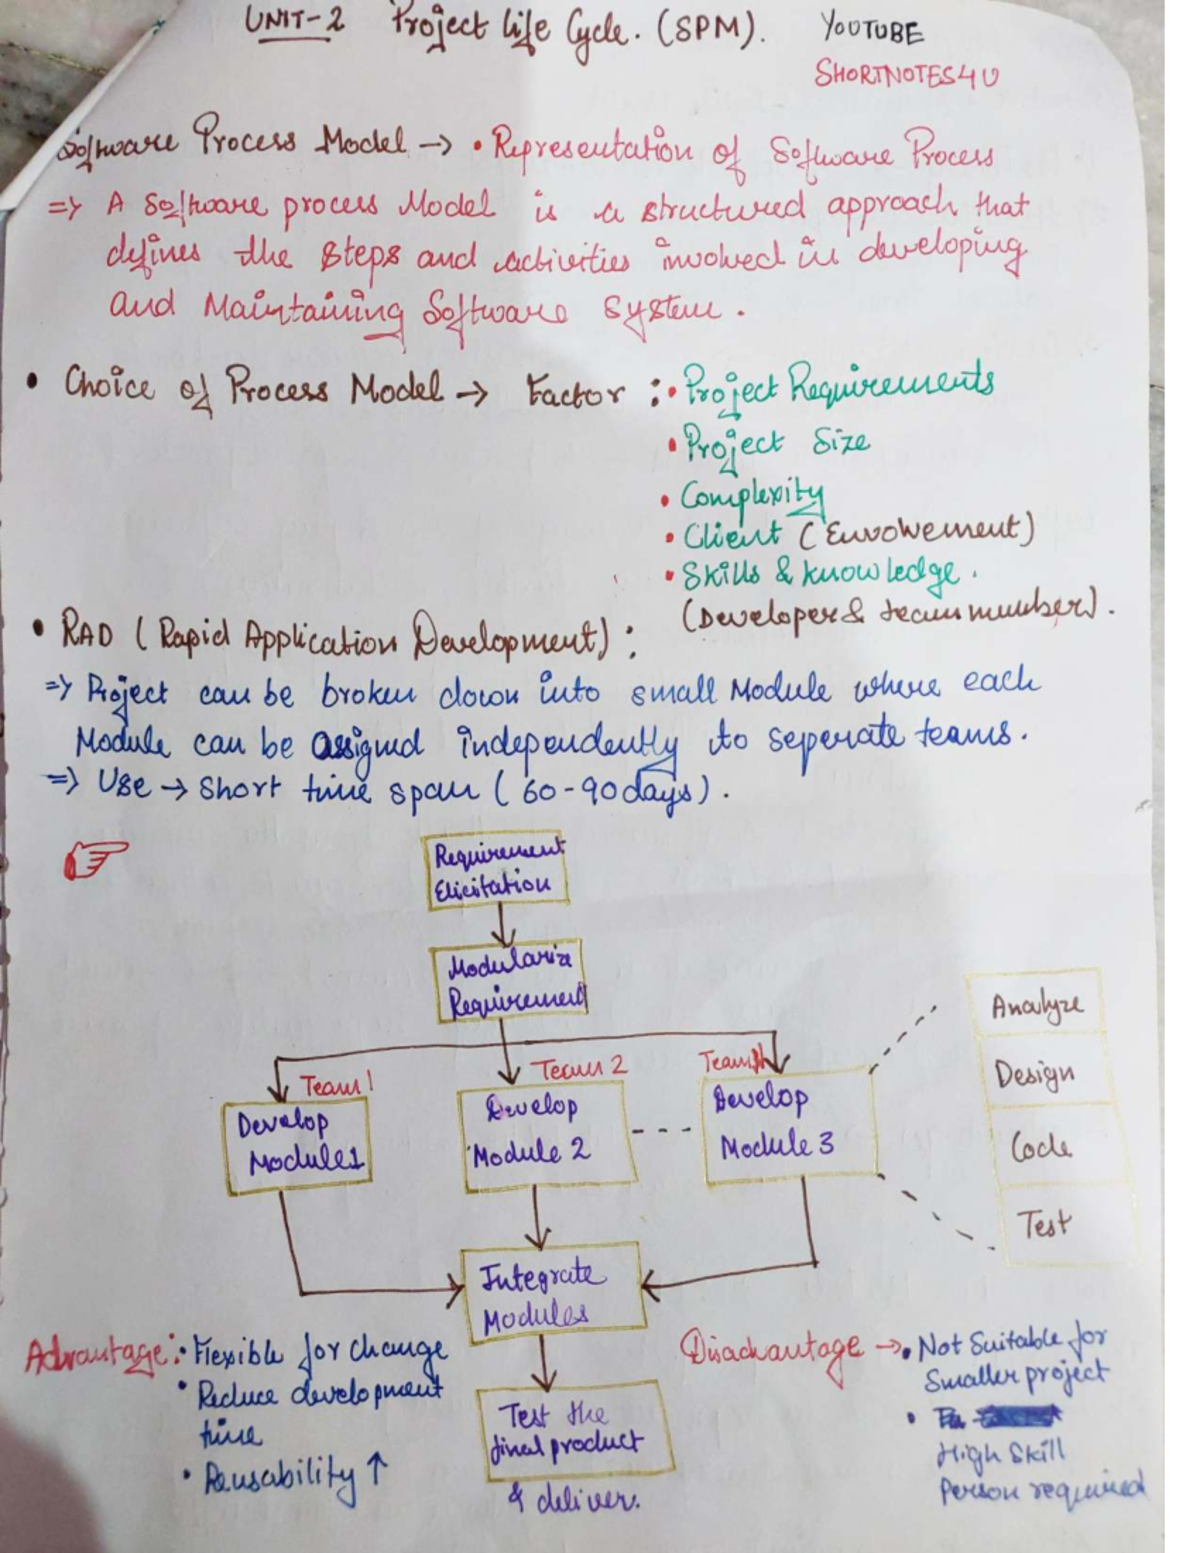 UNIT-2 Project Life Cycle. (SPM). YOUTUBE
SHORTNOTES4U
Software Process Model → • Representation of Software Process
=> A Software process Model is a structured approach that
defines the steps and activities involved in developing
and Maintaining Software system.
• Choice of Process Model → Factor : • Project Requirements
• Project Size
• Complexity
• Client (Envolvement)
• Skills & knowledge.
(Developer & team member).
• RAD (Rapid Application Development) :
=> Project can be broken down into small Module where each
Module can be assigned independently to seperate teams.
=> Use → Short time span (60-90 days).
Requirement
Elicitation
Modularize
Requirement
Team 1
Team 2
Team
Develop
Module 1
Develop
Module 2
Develop
Module 3
Analyze
Design
Code
Test
Integrate
Modules
Test the
final product
& deliver.
Advantage : • Flexible for change
• Reduce development
time
• Reusability ↑
Disadvantage → • Not Suitable for
Smaller project
•
High Skill
Person required